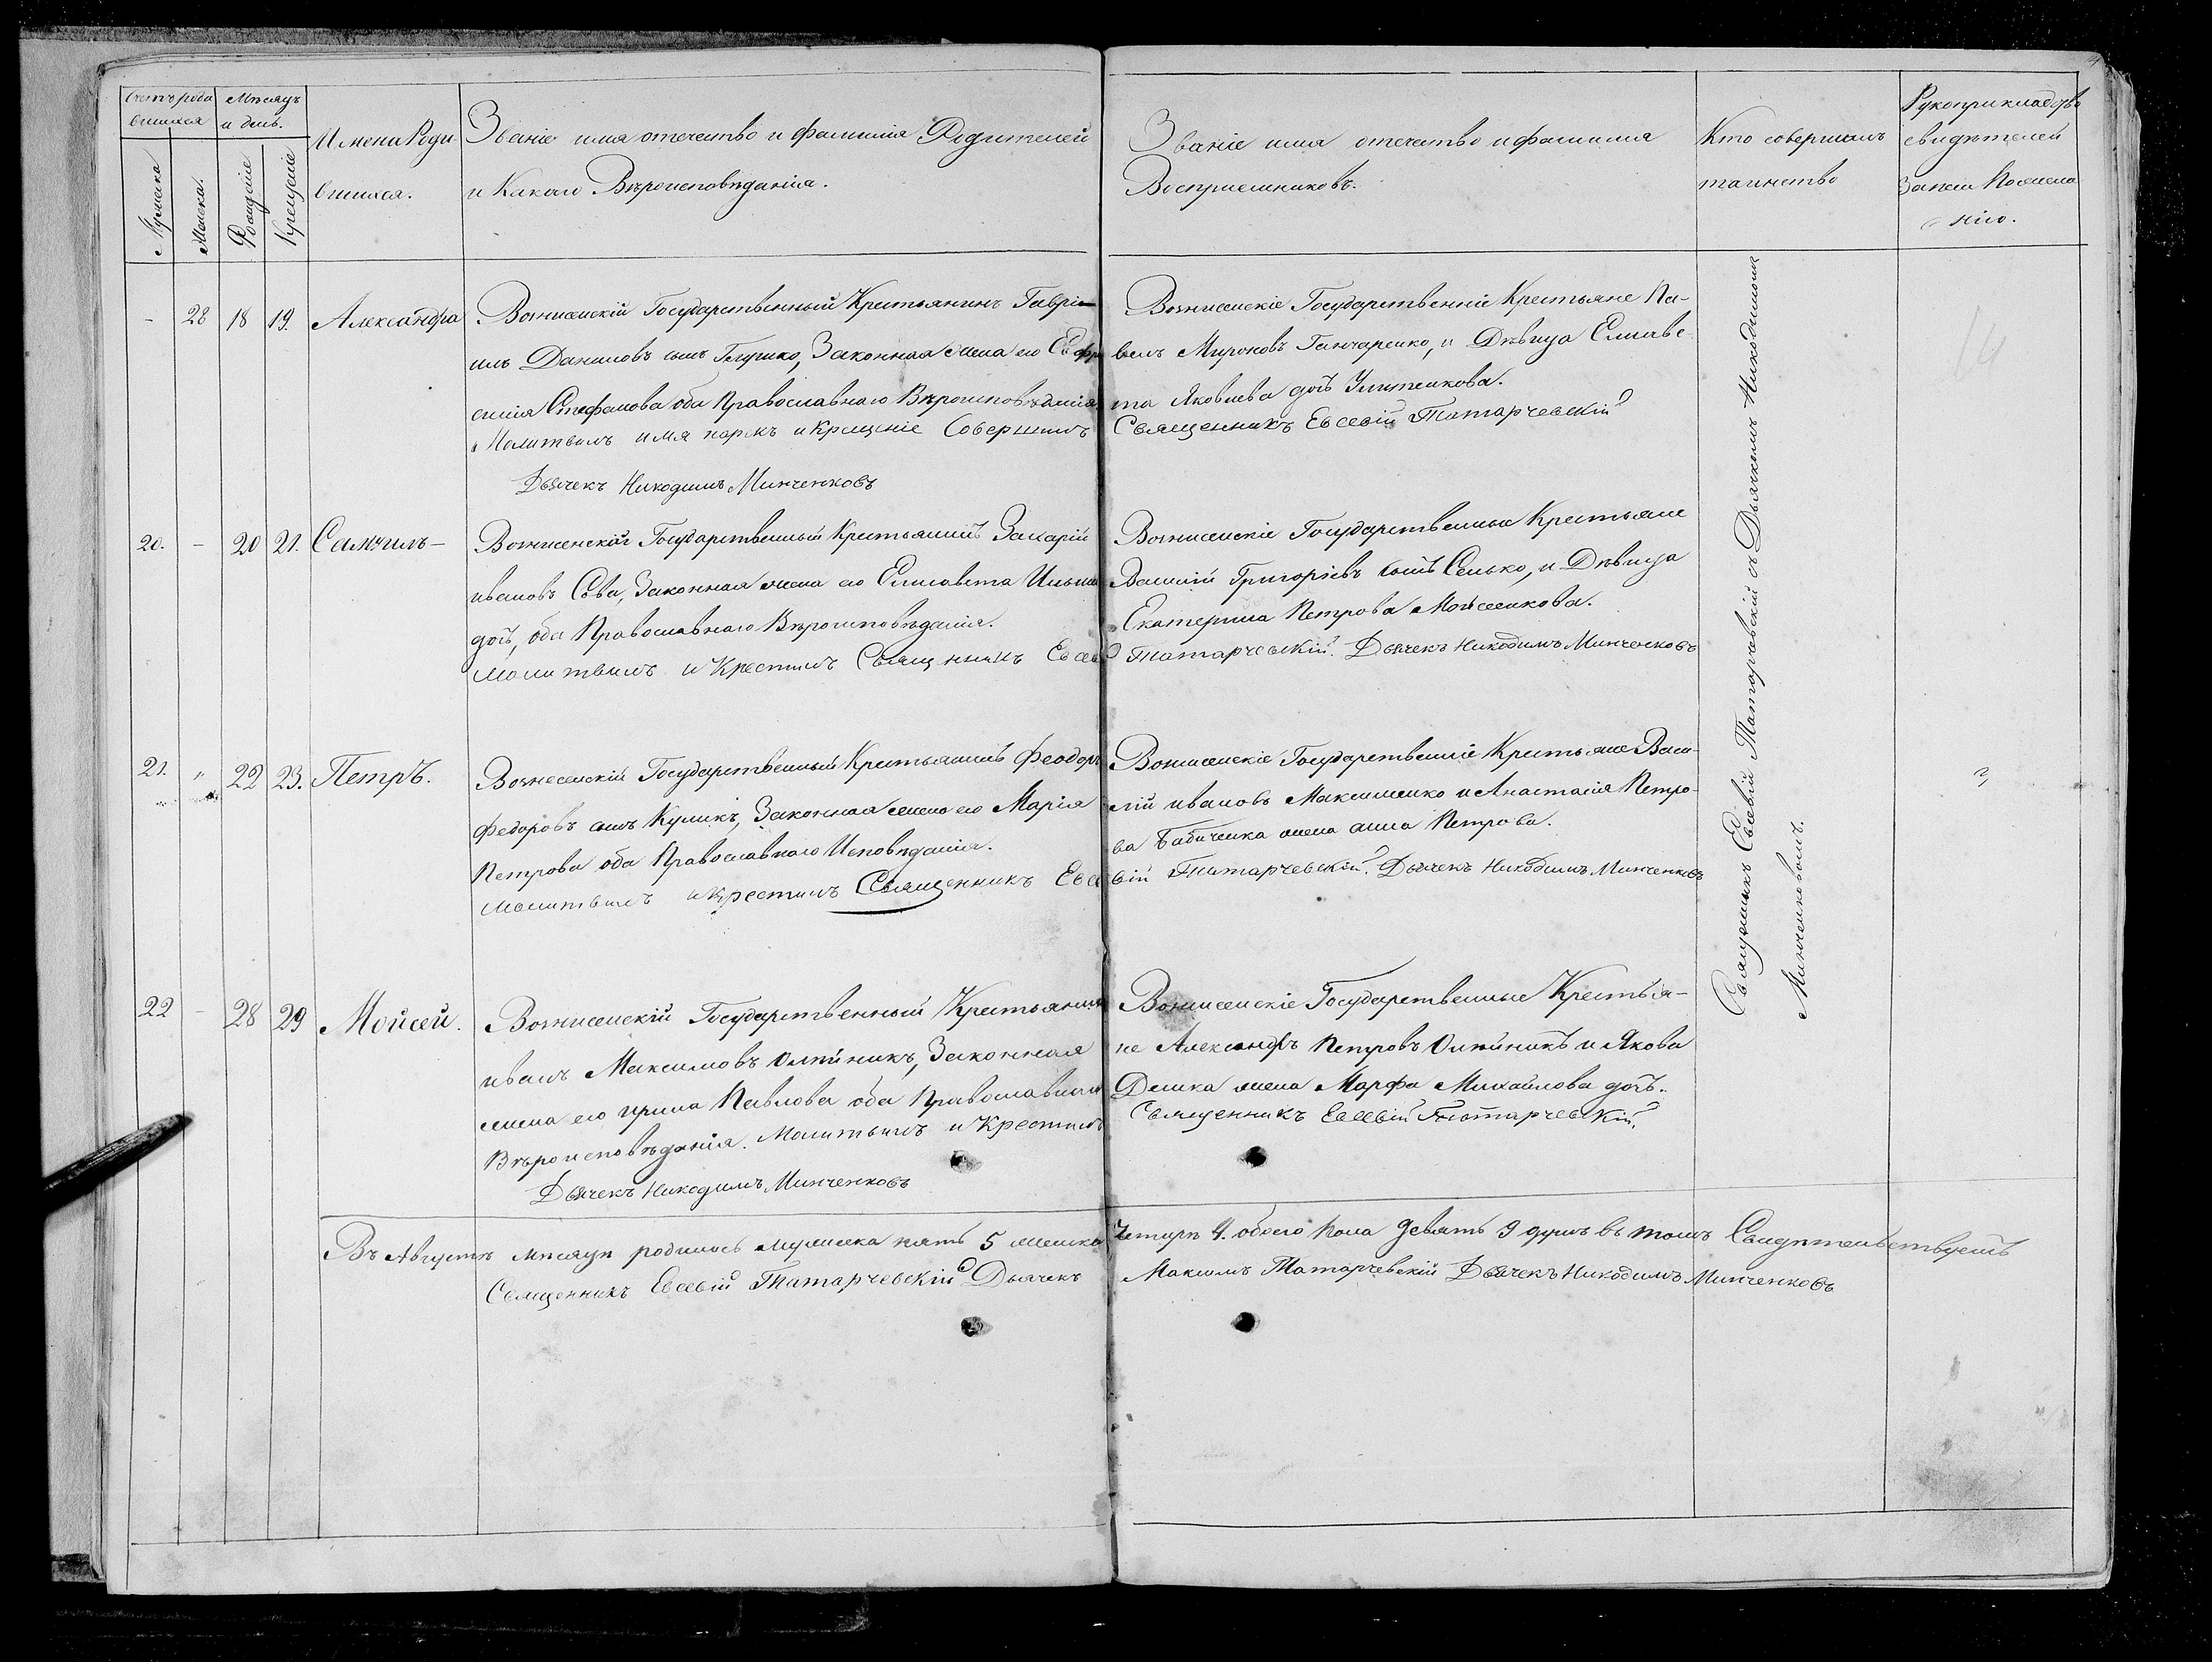 Счетъ роди
вшихся
Мѣсяцъ
и день.
Мужеска
Женска.
Рожденіе
Крещеніе
Имена Роди
вшихся.
Званіе имя отечество и фамилія Родителей
и Какого Вѣроисповѣданія.
Званіе имя отечество и фамилія
Восприемниковъ.
Кто совершалъ
таинство
Рукоприкладство
свидѣтелей
записи Пожела
нію.
- 28 18 19. Александра
Вознисенскій Государственный Крестьянинъ Гаврі-
илъ Даниловъ сынъ, Законная жена его Евфро
синія Стефанова оба Православнаго Вѣроисповѣданія
Молитвилъ имя нарекъ и Крещеніе Совершилъ
Дьячекъ Никодимъ Минченковъ
Вознисенскіе Государственніе Крестьяне Па-
велъ Мироновъ Ганчаренко, и Дѣвица Елисаве
та Яковлева дочь Улитенкова.
Священникъ Евсевій Татарчевскій
20. - 20 21. Самуилъ-
Вознисенскій Государственный Крестьянинъ Захарій
ивановъ Сова, Законная жена его Елисавета Ильина
дочь, оба Православнаго Вѣроисповѣданія.
Молитвилъ и Крестилъ Священникъ Евсев
Вознисенскіе Государственные Крестьяне
Василій Григоріевъ сынъ Сенько, и Дѣвица
Екатерина Петрова Мойсеикова.
Татарчевскій. Дьячекъ Никодимъ Минченковъ
21. " 22 23. Петръ.
Вознесенскій Государственный Крестьянинъ Феодоръ
Федоровъ сынъ Куликъ, Законная жена его Марія
Петрова оба Православнаго Исповѣданія.
Молитвилъ и Крестилъ Священникъ Евсе
Вознисенскіе Государственніе Крестьяне Васи-
лій ивановъ Максименко и Анастасія Петро-
ва Бабиченка жена анна Петрова.
вій Татарчевскій. Дьячекъ Никодимъ Минченковъ
22 - 28 29 Мойсей.
Вознисенскій Государственный Крестьянинъ
иванъ Максимовъ Олѣйникъ, Законная
жена его ирина Павлова оба Православнаго
Вѣроисповѣданія. Молитвилъ и Крестилъ
Дьячекъ Никодимъ Минченковъ
Вознисенскіе Государственные Крестья-
не Александръ Петровъ Олѣйникъ и Якова
жена Марфа Михайлова дочь.
Священникъ Евсевій Татарчевскій
Священникъ Евсевій Татарчевскій съ Дьячкомъ Никодимомъ
Минченковымъ.
Въ Августѣ мѣсяцѣ родилось мужеска пять 5 женска Четыре 4. обоего Пола девять 9 душъ въ томъ Свидѣтельствуетъ
Священникъ Евсевій Татарчевскій Дьячекъ Максимъ Татарчевскій Дьячекъ Никодимъ Минченковъ